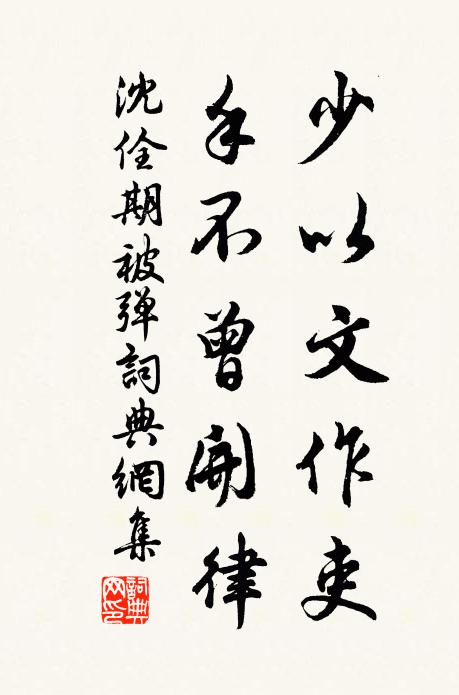 少以文作吏
手不曾開律
沈佺期被弹詞典網集
詞典
网印